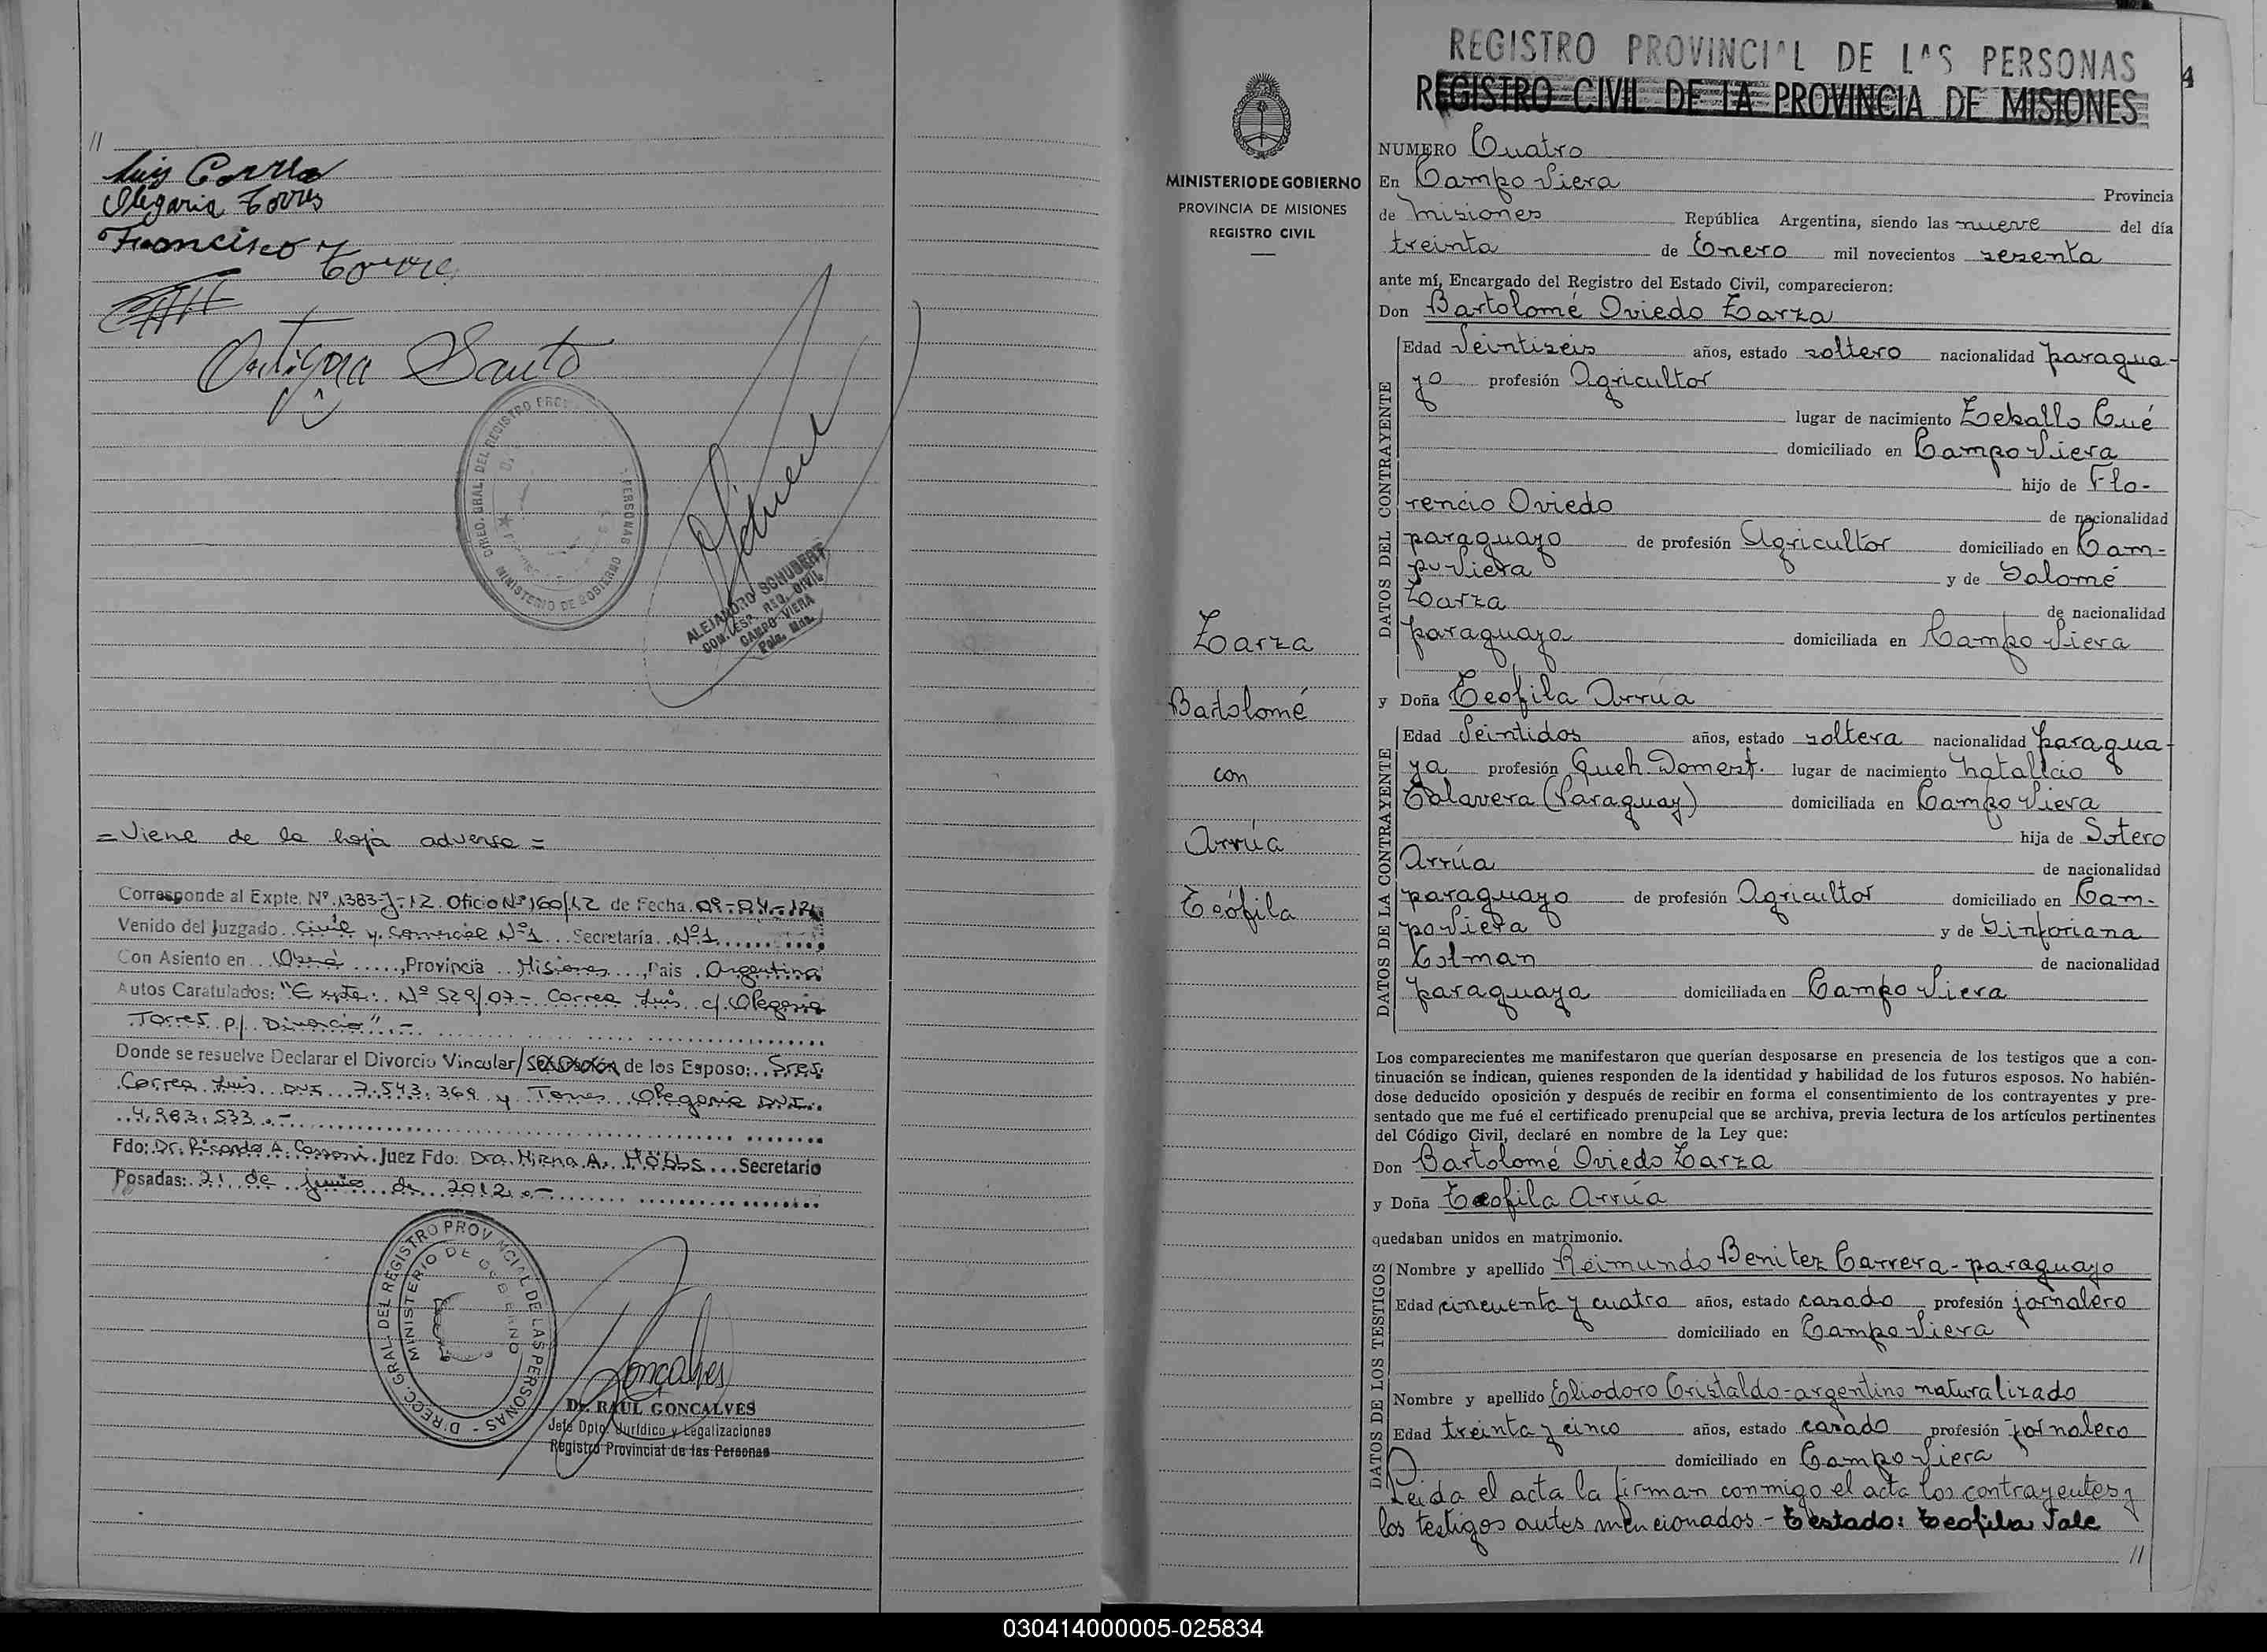 //
Luis Correa
Olegaria Torres
Francisco Torre
Santo
DIREC. GRAL. DEL REGISTRO PROV PERSONAS
MINISTERIO DE GOBIERNO
ALEJANDRO SCHUBERT
REG. CIVIL
CAMPO VIERA
= Viene de la hoja adversa =
Corresponde al Expte. Nº 1383-J-12 Oficio Nº 160/12 de Fecha 09-04-12
Venido del Juzgado Civil y Comercial Nº 1 Secretaría Nº 1
Con Asiento en Oberá, Provincia Misiones, Pais Argentina
Autos Caratulados: "Expte. Nº 529/07 - Correa Luis c/ Olegaria
Torres p/ Divorcio".-
Donde se resuelve Declarar el Divorcio Vincular/ de los Esposo: Sres.
Correa Luis DNI 7.543.369 y Torres Olegaria DNI.
4.983.533.-
Fdo: Dr. Ricardo A. Juez Fdo: Dra. Mirna A. Secretario
Posadas: 21 de junio de 2012.-
DIRECC. GRAL. DEL REGISTRO PROVINCIAL DE LAS PERSONAS -
MINISTERIO DE GOBIERNO
Goncalves
Dr. RAUL GONCALVES
Jefe Dpto. Jurídico y Legalizaciones
Registro Provincial de las Personas
MINISTERIO DE GOBIERNO
PROVINCIA DE MISIONES
REGISTRO CIVIL
Zarza
Bartolomé
con
Arrúa
Teófila
REGISTRO PROVINCIAL DE LAS PERSONAS
4
REGISTRO CIVIL DE LA PROVINCIA DE MISIONES
NUMERO Cuatro
En Campo Viera Provincia
de Misiones República Argentina, siendo las nueve del día
treinta de Enero mil novecientos sesenta
ante mí, Encargado del Registro del Estado Civil, comparecieron:
Don Bartolomé Oviedo Zarza
DATOS DEL CONTRAYENTE
Edad Veintiseis años, estado soltero nacionalidad paragua-
yo profesión Agricultor
lugar de nacimiento Zeballo Cué
domiciliado en Campo Viera
hijo de Flo-
rencio Oviedo de nacionalidad
paraguayo de profesión Agricultor domiciliado en Cam-
po Viera y de Salomé
Zarza de nacionalidad
paraguaya domiciliada en Campo Viera
y Doña Teofila Arrúa
DATOS DE LA CONTRAYENTE
Edad Veintidos años, estado soltera nacionalidad paragua-
ya profesión Queh. Domest. lugar de nacimiento Natalicio
Talavera (Paraguay) domiciliada en Campo Viera
hija de Sotero
Arrúa de nacionalidad
paraguayo de profesión Agricultor domiciliado en Cam-
po Viera y de Sinforiana
Colman de nacionalidad
paraguaya domiciliada en Campo Viera
Los comparecientes me manifestaron que querían desposarse en presencia de los testigos que a con-
tinuación se indican, quienes responden de la identidad y habilidad de los futuros esposos. No habién-
dose deducido oposición y después de recibir en forma el consentimiento de los contrayentes y pre-
sentado que me fué el certificado prenupcial que se archiva, previa lectura de los artículos pertinentes
del Código Civil, declaré en nombre de la Ley que:
Don Bartolomé Oviedo Zarza
y Doña Teofila Arrúa
quedaban unidos en matrimonio.
DATOS DE LOS TESTIGOS
Nombre y apellido Reimundo Benitez Carrera - paraguayo
Edad cincuenta y cuatro años, estado casado profesión jornalero
domiciliado en Campo Viera
Nombre y apellido Eliodoro Cristaldo - argentino naturalizado
Edad treinta y cinco años, estado casado profesión jornalero
domiciliado en Campo Viera
Leida el acta la firman conmigo el acta los contrayentes y
los testigos antes mencionados - Testado: Teofila Vale
//
030414000005-025834